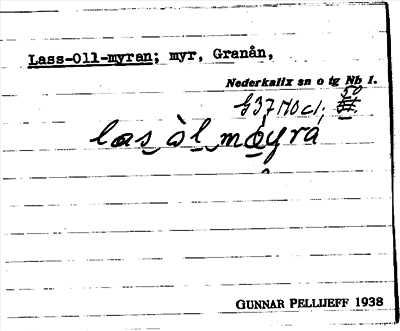 Lass-Oll-myran; myr, Granån,
Nederkalix sn o tg Nb 1.
50
G37 NO c1;
las òl møyrá
GUNNAR PELLIJEFF 1938